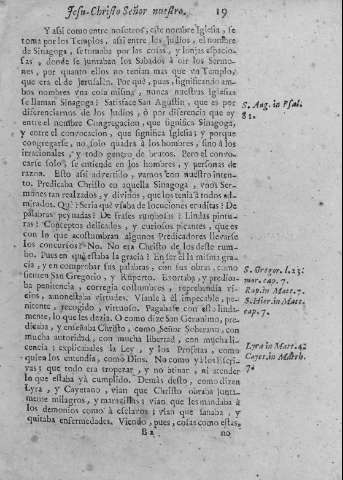 Jesu-Christo Señor nuestro. 19
Y assi como entre nosotros, este nombre Iglesia, se
toma por los Templos, assi entre los Judios, el nombre
de Sinagoga, se tomaba por las casas, y lonjas espacio-
sas, donde se juntaban los Sabados à oir los Sermo-
nes, por quanto ellos no tenian mas que un Templo,
que era el de Jerusalèn. Por què, pues, significando am-
bos nombres una cosa misma, nunca nuestras Iglesias
se llaman Sinagoga? Satisface San Agustin, que es por
diferenciarnos de los Judios, ò por diferencia que ay
entre el nombre Congregacion, que significa Sinagoga,
y entre el convocacion, que significa Iglesia; y porque
congregarse, no solo quadra à los hombres, sino à los
irracionales, y todo genero de brutos. Pero el convo-
carse solo, se entiende en los hombres, y personas de
razon. Esto assi advertido, vamos con nuestro inten-
to. Predicaba Christo en aquella Sinagoga, unos Ser-
mones tan realzados, y divinos, que los tenia à todos ad-
mirados. Què? Seria què usaba de locuciones eruditas? De
palabras peynadas? De frases rumbosas? Lindas pintu-
ras? Conceptos delicados, y curiosos picantes, que es
con lo que acostumbran algunos Predicadores llevarse
los concursos? No. No era Christo de los deste rum-
bo. Pues en què estaba la gracia? En ser èl la misma gra-
cia, y en comprobar sus palabras, con sus obras, como
sienten San Gregorio, y Ruperto. Exortaba, y predica-
ba penitencia, corregia costumbres, reprehendia vi-
cios, amonestaba virtudes. Vianle à èl impecable, pe-
nitente, recogido, virtuoso. Pagabase con esto linda-
mente, lo que les dezia. O como dize San Geronimo, pre-
dicaba, y enseñaba Christo, como Señor Soberano, con
mucha autoridad, con mucha libertad, con mucha li-
cencia: explicabales la Ley, y los Profetas, como
quien los entendia, como Dios. No como
que todo era tropezar, y no atinar, ni atender
lo que estaba yà cumplido. Demàs desto, como dizen
Lyra, y Cayetano, vian que Christo obraba junta-
mente milagros, y maravillas; vian que les mandaba à
los demonios como à esclavos; vian que sanaba, y
quitaba enfermedades. Viendo, pues, cosas como estas,
B 2 no
S. Aug. in Psal.
82.
S. Gregor. l. 23.
mor. cap. 7.
Rup. in Matt. 7.
S. Hier. in Matt.
cap. 7.
Lyra in Matt. 42
Cayet. in Matth.
7.